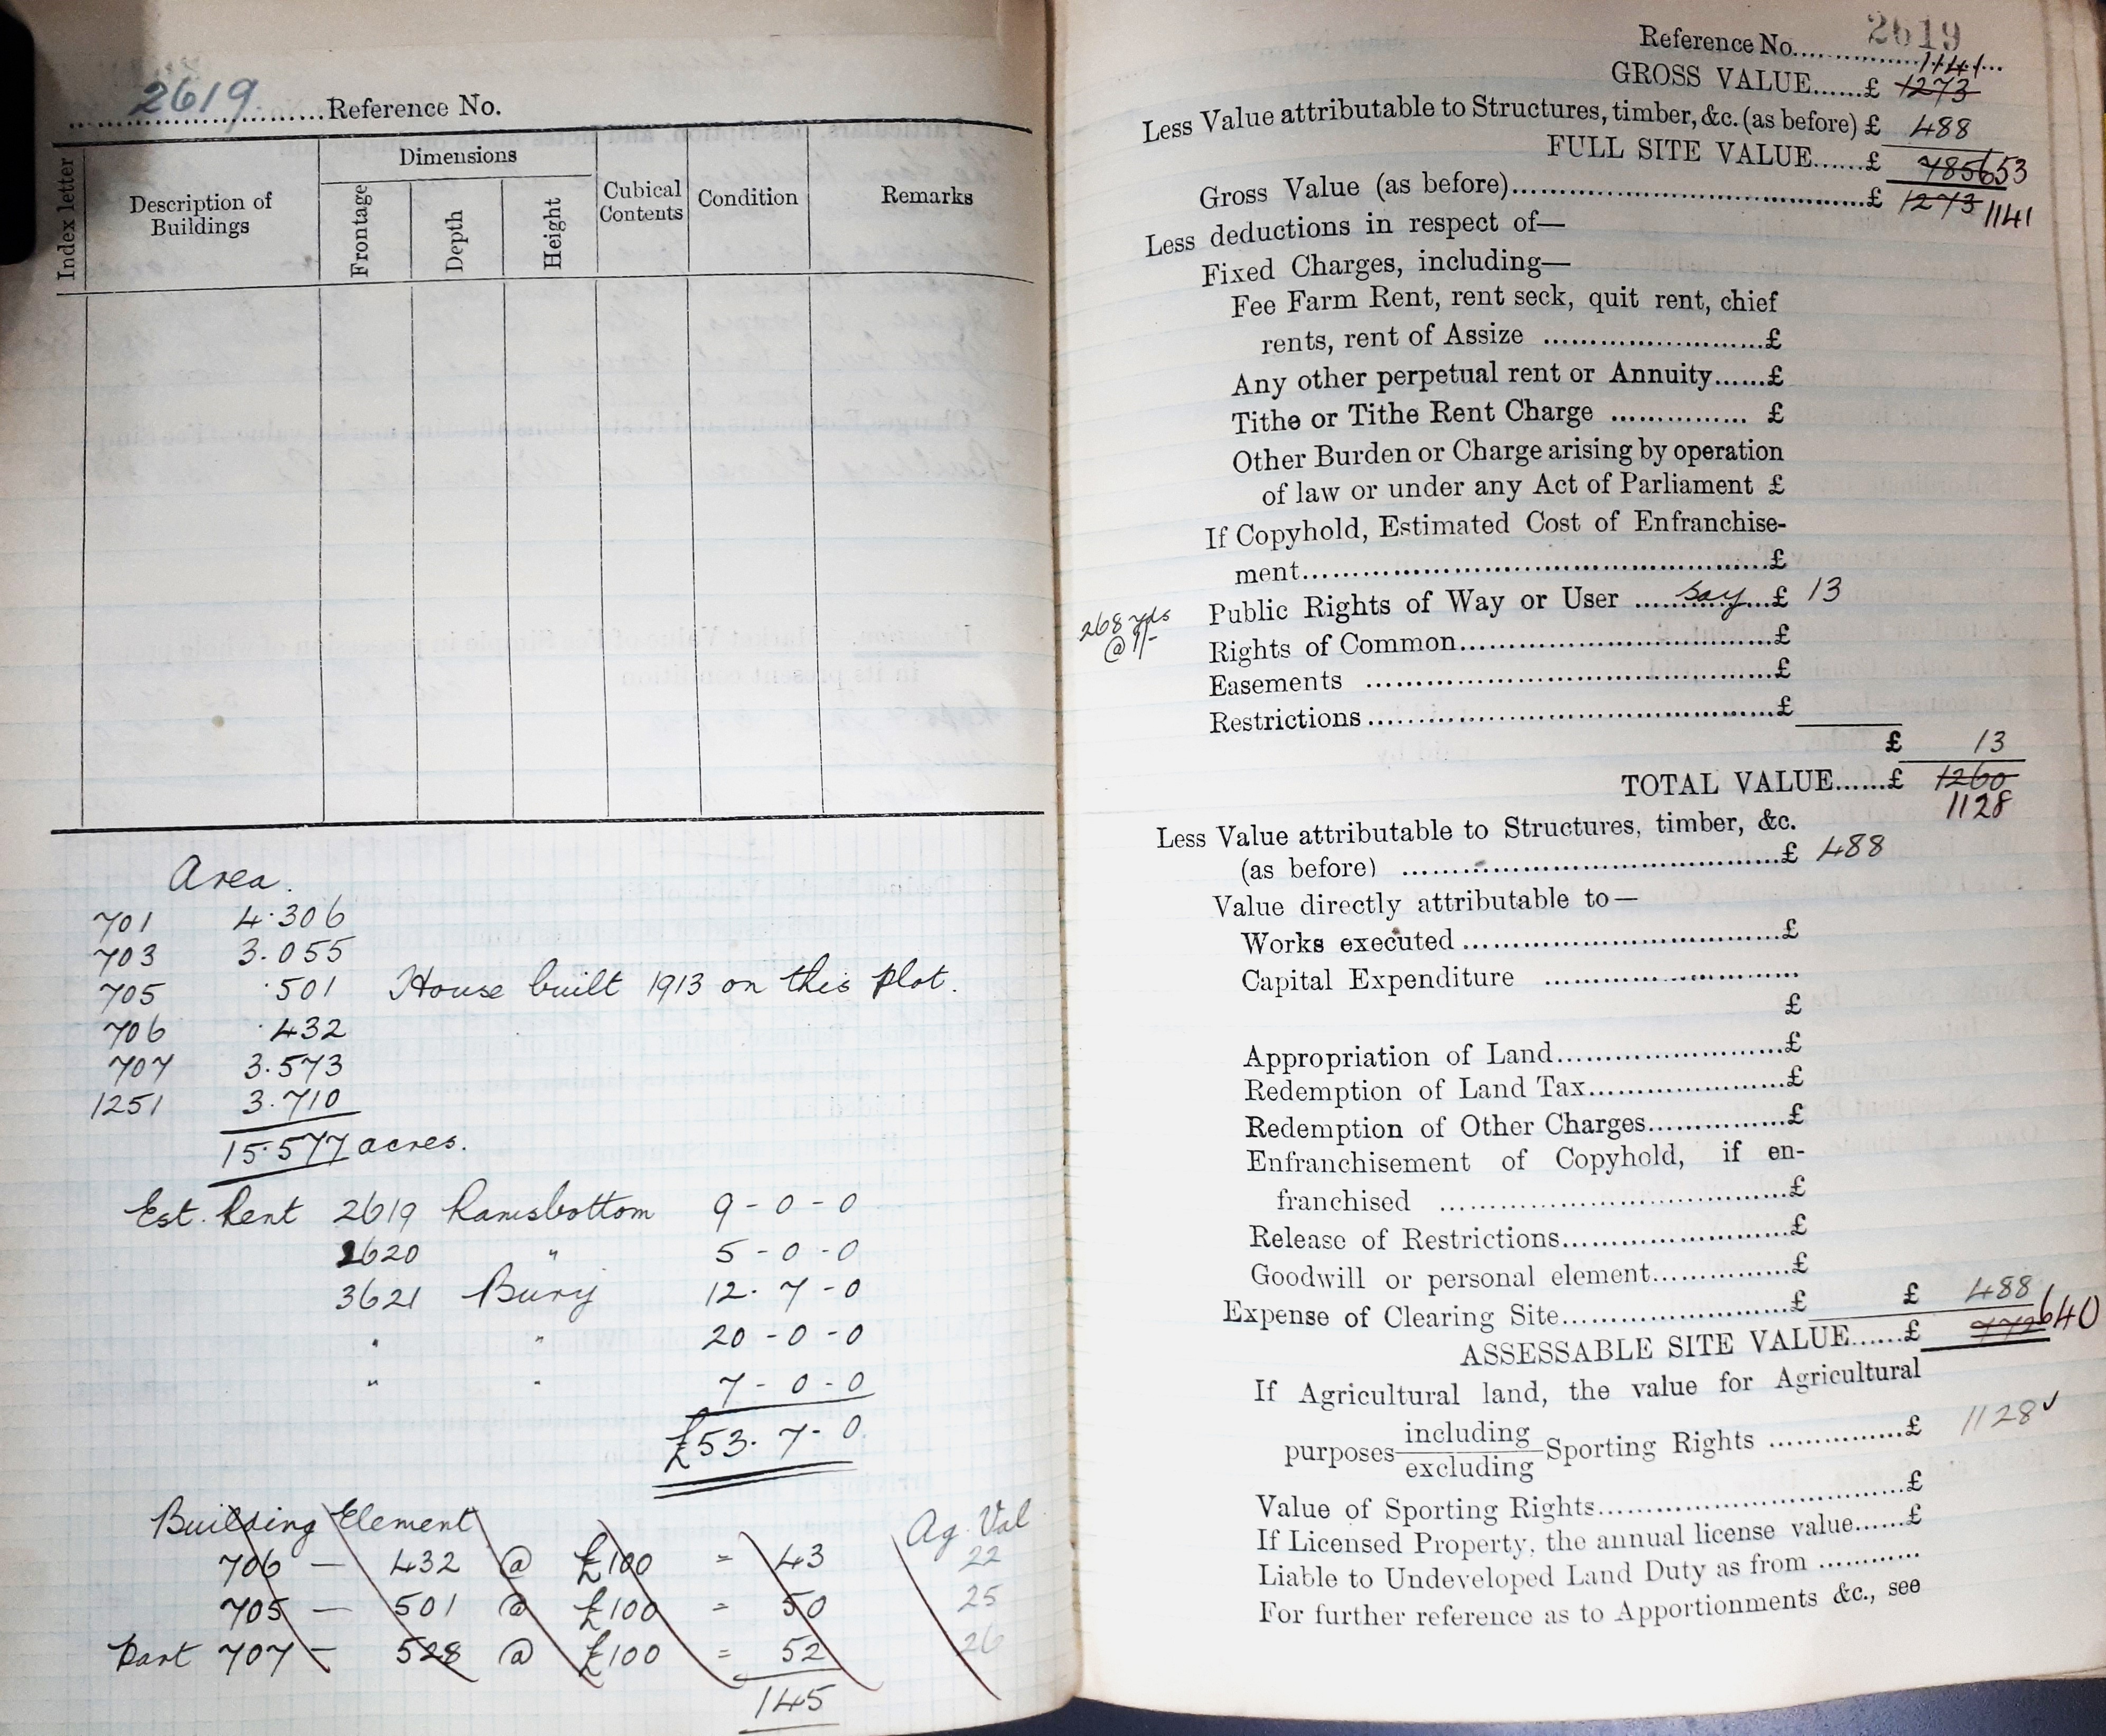 2619 Reference No.
Index letter
Description of Buildings
Dimensions
Frontage
Depth
Height
Cubical Contents
Condition
Remarks
Area.
701 4.306
703 3.055
705 .501 House built 1913 on this plot.
706 .432
707 3.573
1251 3.710
15.577 acres.
Est. Rent 2619 Ramsbottom 9-0-0
2620 " 5-0-0
3621 Bury 12.7-0
" " 20-0-0
" " 7-0-0
£53.7-0.
Building Element Ag. Val
706 — 432 @ £100 = 43 22
705 — 501 @ £100 = 50 25
Part 707 — 528 @ £100 = 52 26
145
Reference No. 2619
1141
GROSS VALUE......£ 1273
Less Value attributable to Structures, timber, &c. (as before) £ 488
FULL SITE VALUE......£ 785 653
Gross Value (as before)......£ 1273 1141
Less deductions in respect of—
Fixed Charges, including—
Fee Farm Rent, rent seck, quit rent, chief
rents, rent of Assize ......£
Any other perpetual rent or Annuity......£
Tithe or Tithe Rent Charge ...... £
Other Burden or Charge arising by operation
of law or under any Act of Parliament £
If Copyhold, Estimated Cost of Enfranchise-
ment......£
268 yds @ 1/- Public Rights of Way or User ...say...£ 13
Rights of Common......£
Easements ......£
Restrictions......£
£ 13
TOTAL VALUE......£ 1260
1128
Less Value attributable to Structures, timber, &c.
(as before) ......£ 488
Value directly attributable to—
Works executed......£
Capital Expenditure ......
£
Appropriation of Land......£
Redemption of Land Tax......£
Redemption of Other Charges......£
Enfranchisement of Copyhold, if en-
franchised ......£
Release of Restrictions......£
Goodwill or personal element......£
Expense of Clearing Site......£ £ 488
ASSESSABLE SITE VALUE......£ 772 640
If Agricultural land, the value for Agricultural
purposes including / excluding Sporting Rights ......£ 1128 ✓
Value of Sporting Rights......£
If Licensed Property, the annual license value......£
Liable to Undeveloped Land Duty as from ......
For further reference as to Apportionments &c., see